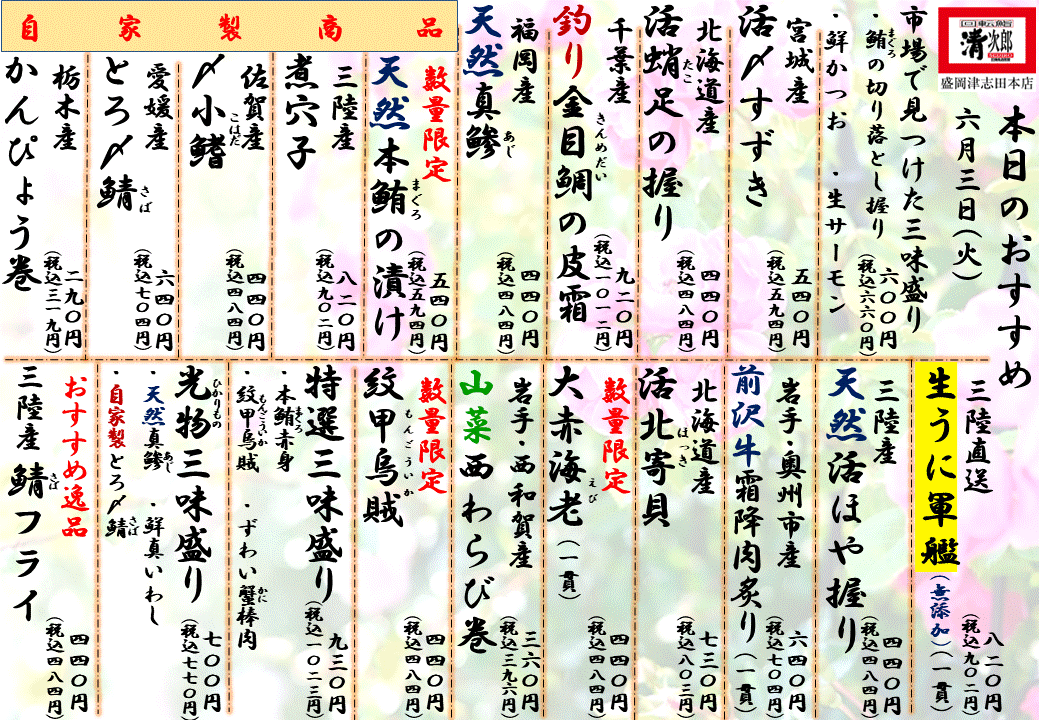 回転鮨
清次郎
盛岡津志田本店
本日のおすすめ
六月三日(火)
市場で見つけた三味盛り
・鮪の切り落とし握り
まぐろ
・鮮かつお ・生サーモン
六〇〇円
(税込六六〇円)
宮城産
活〆すずき
五四〇円
(税込五九四円)
北海道産
活蛸足の握り
たこ
四四〇円
(税込四八四円)
千葉産
釣り金目鯛の皮霜
きんめだい
九二〇円
(税込一〇一二円)
福岡産
天然真鰺
あじ
四四〇円
(税込四八四円)
自家製商品
数量限定
天然本鮪の漬け
まぐろ
五四〇円
(税込五九四円)
三陸産
煮穴子
八二〇円
(税込九〇二円)
佐賀産
〆小鰭
こはだ
四四〇円
(税込四八四円)
愛媛産
とろ〆鯖
さば
六四〇円
(税込七〇四円)
栃木産
かんぴょう巻
二九〇円
(税込三一九円)
三陸直送
生うに軍艦
(無添加)(一貫)
八二〇円
(税込九〇二円)
三陸産
天然活ほや握り
四四〇円
(税込四八四円)
岩手・奥州市産
前沢牛霜降肉炙り(一貫)
六四〇円
(税込七〇四円)
北海道産
活北寄貝
ほっき
七三〇円
(税込八〇三円)
数量限定
大赤海老(一貫)
えび
四四〇円
(税込四八四円)
岩手・西和賀産
山菜西わらび巻
三六〇円
(税込三九六円)
数量限定
紋甲烏賊
もんごういか
四四〇円
(税込四八四円)
特選三味盛り
・本鮪赤身
まぐろ
・紋甲烏賊 ・ずわい蟹棒肉
もんごういか かに
九三〇円
(税込一〇二三円)
光物三味盛り
ひかりもの
・天然真鰺 ・鮮真いわし
あじ
・自家製とろ〆鯖
さば
七〇〇円
(税込七七〇円)
おすすめ逸品
三陸産 鯖フライ
さば
四四〇円
(税込四八四円)